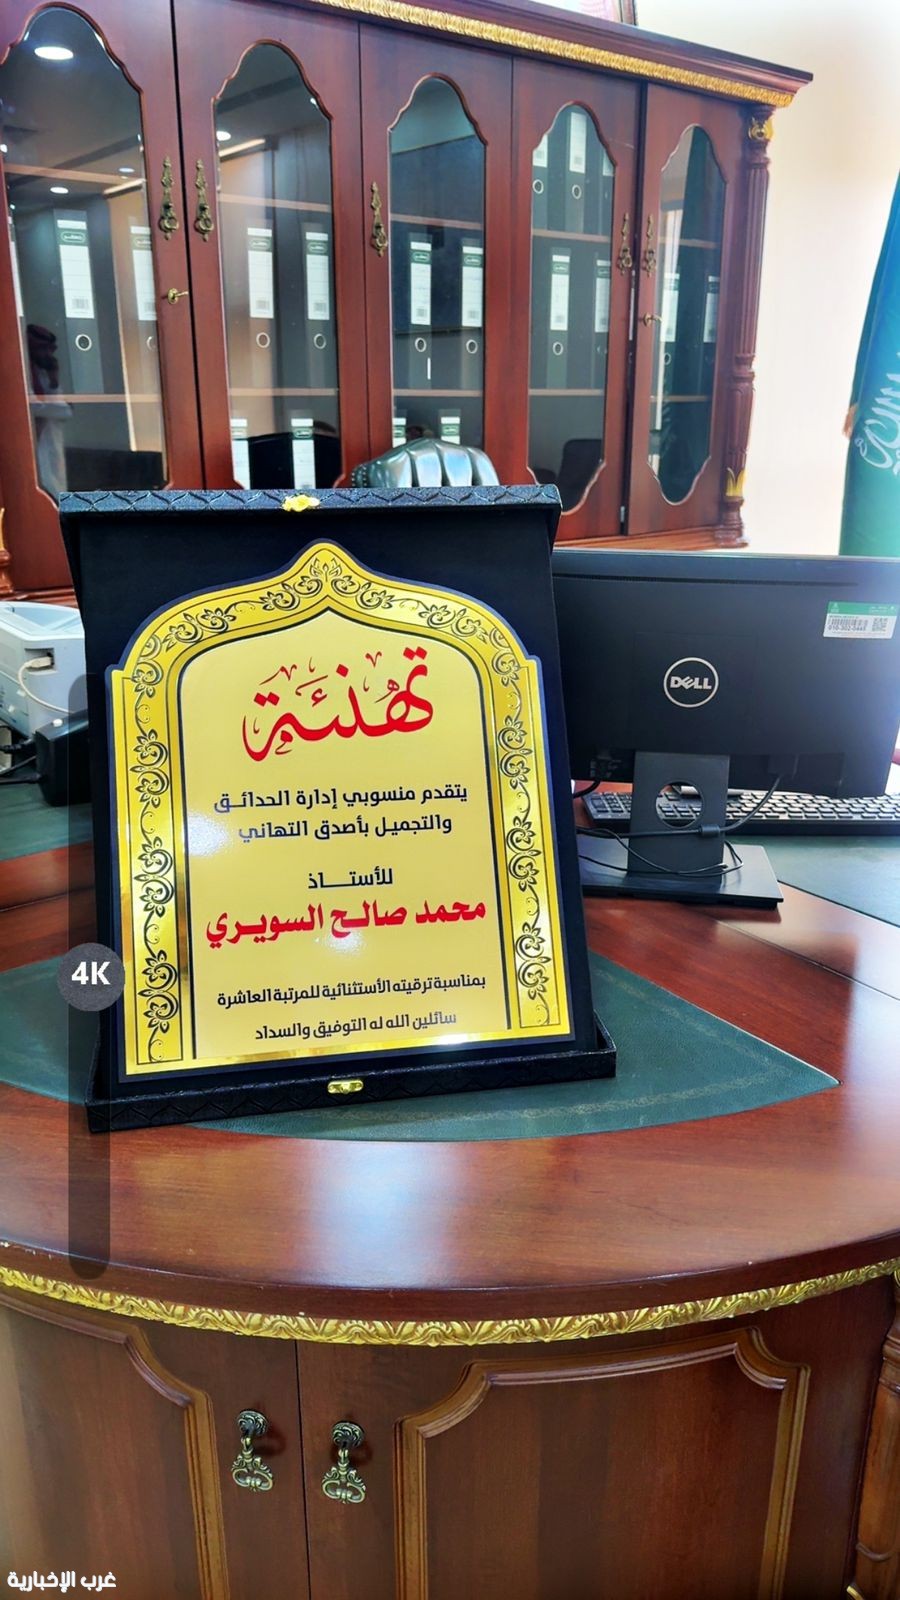 تهنئة
يتقدم منسوبي إدارة الحدائـق
والتجميل بأصدق التهاني
للأستــــاذ
محمد صالـح السويـري
بمناسبة ترقيته الأستثنائية للمرتبة العاشرة
سائلين الله له التوفيق والسداد
DELL
016-302-0445
4K
غرب الإخبارية